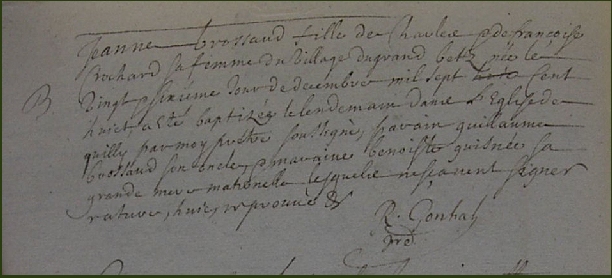 Jeanne brossaud fille de Charles & de francoise
Rochard sa femme du village du grand betz née le
vingt & sixieme jour de decembre mil sept cent
huict, a esté baptizée le lendemain dans l'Eglise de
quilly par moy pretre soussigné, parain guillaume
B
brossaud son oncle, & maraine benoiste quisnée sa
grande mere maternelle lesquels ne scavent signer
rature, huit, reprouvé &
R. Gonhal
pre